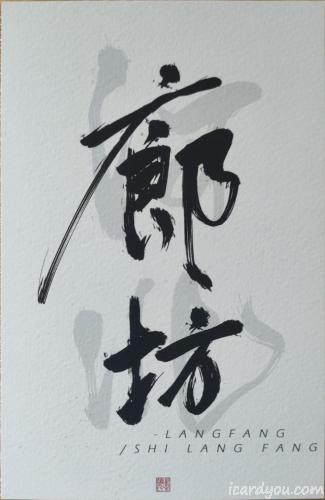 廊
坊
- LANGFANG
/SHI LANG FANG
icardyou.com